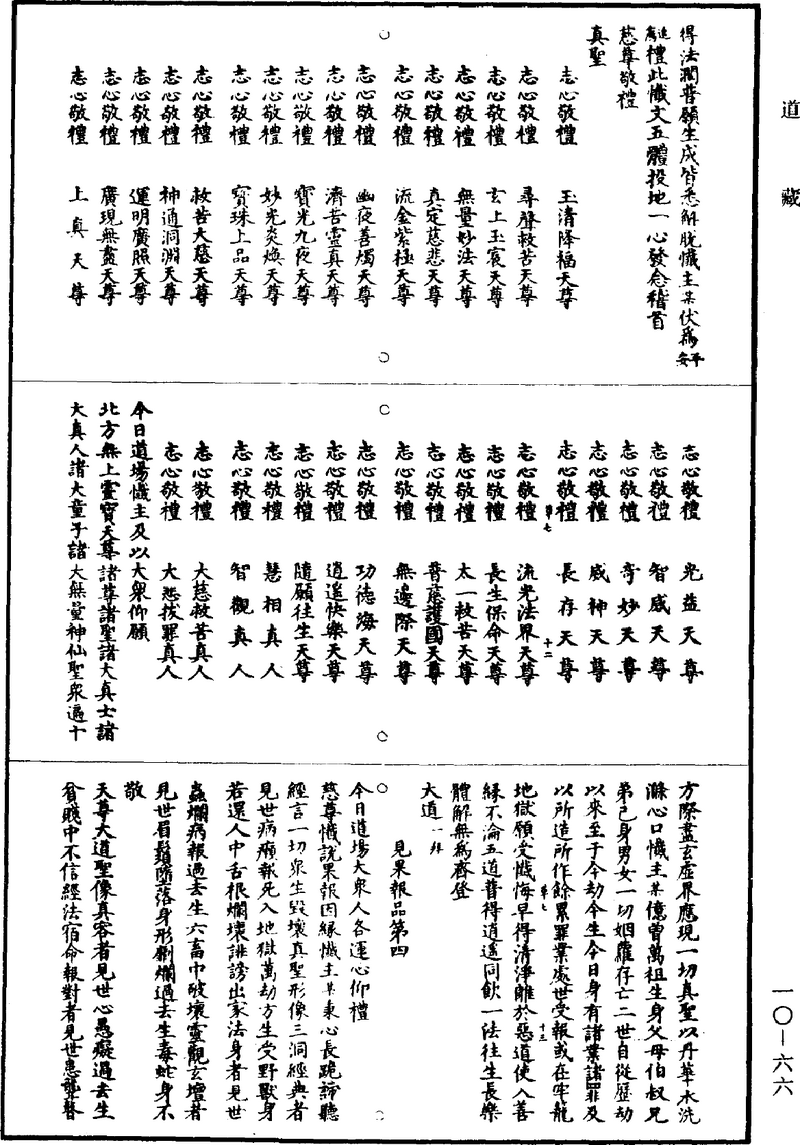 道藏
得法潤普願生成皆悉解脫懺主某伏爲平安
追薦禮此懺文五體投地一心發念稽首
慈尊敬禮
真聖
志心敬禮　玉清降福天尊
志心敬禮　尋聲救苦天尊
志心敬禮　玄上玉宸天尊
志心敬禮　無量妙法天尊
志心敬禮　真定慈悲天尊
志心敬禮　流金紫極天尊
志心敬禮　幽夜善燭天尊
志心敬禮　濟苦靈真天尊
志心敬禮　寶光九夜天尊
志心敬禮　妙光炎煥天尊
志心敬禮　寶珠上品天尊
志心敬禮　救苦大慈天尊
志心敬禮　神通洞淵天尊
志心敬禮　運明廣照天尊
志心敬禮　廣現無盡天尊
志心敬禮　上真天尊
志心敬禮　光益天尊
志心敬禮　智威天尊
志心敬禮　奇妙天尊
志心敬禮　威神天尊
志心敬禮　長存天尊
第七　十二
志心敬禮　流光法界天尊
志心敬禮　長生保命天尊
志心敬禮　太一救苦天尊
志心敬禮　普應護國天尊
志心敬禮　無邊際天尊
志心敬禮　功德海天尊
志心敬禮　逍遙快樂天尊
志心敬禮　隨願往生天尊
志心敬禮　慧相真人
志心敬禮　智觀真人
志心敬禮　大慈救苦真人
志心敬禮　大悲拔罪真人
今日道場懺主及以大衆仰願
北方無上靈寶天尊諸尊諸聖諸大真士諸
大真人諸大童子諸大無量神仙聖衆遍十
方際盡玄虛界應現一切真聖以丹華水洗
滌心口懺主某億曾萬祖生身父母伯叔兄
弟己身男女一切姻羅存亡二世自從歷劫
以來至于今劫今生今日身有諸業諸罪及
以所造所作餘累罪業處世受報或在牢籠
第七　十三
地獄願受懺悔早得清淨離於惡道使入善
緣不淪五道普得逍遙同飲一法往生長樂
體解無爲齊登
大道一拜
見果報品第四
今日道場大衆人各運心仰禮
慈尊懺說果報因緣懺主某秉心長跪諦聽
經言一切衆生毀壞真聖形像三洞經典者
見世病癩報死入地獄萬劫方生受野獸身
若還人中舌根爛壞誹謗出家法身者見世
蟲爛病報過去生六畜中破壞靈觀玄壇者
見世眉鬚墮落身形剜爛過去生毒蛇身不
敬
天尊大道聖像真容者見世心愚癡過去生
貧賤中不信經法宿命報對者見世患聾瞽
一〇—六六